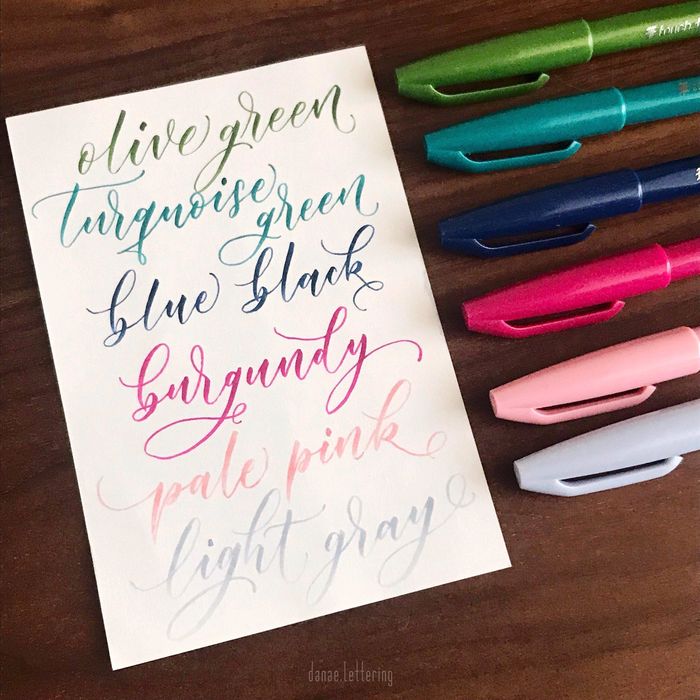 olive green
turquoise
green
blue black
burgundy
pale pink
light gray
touch
danae.lettering